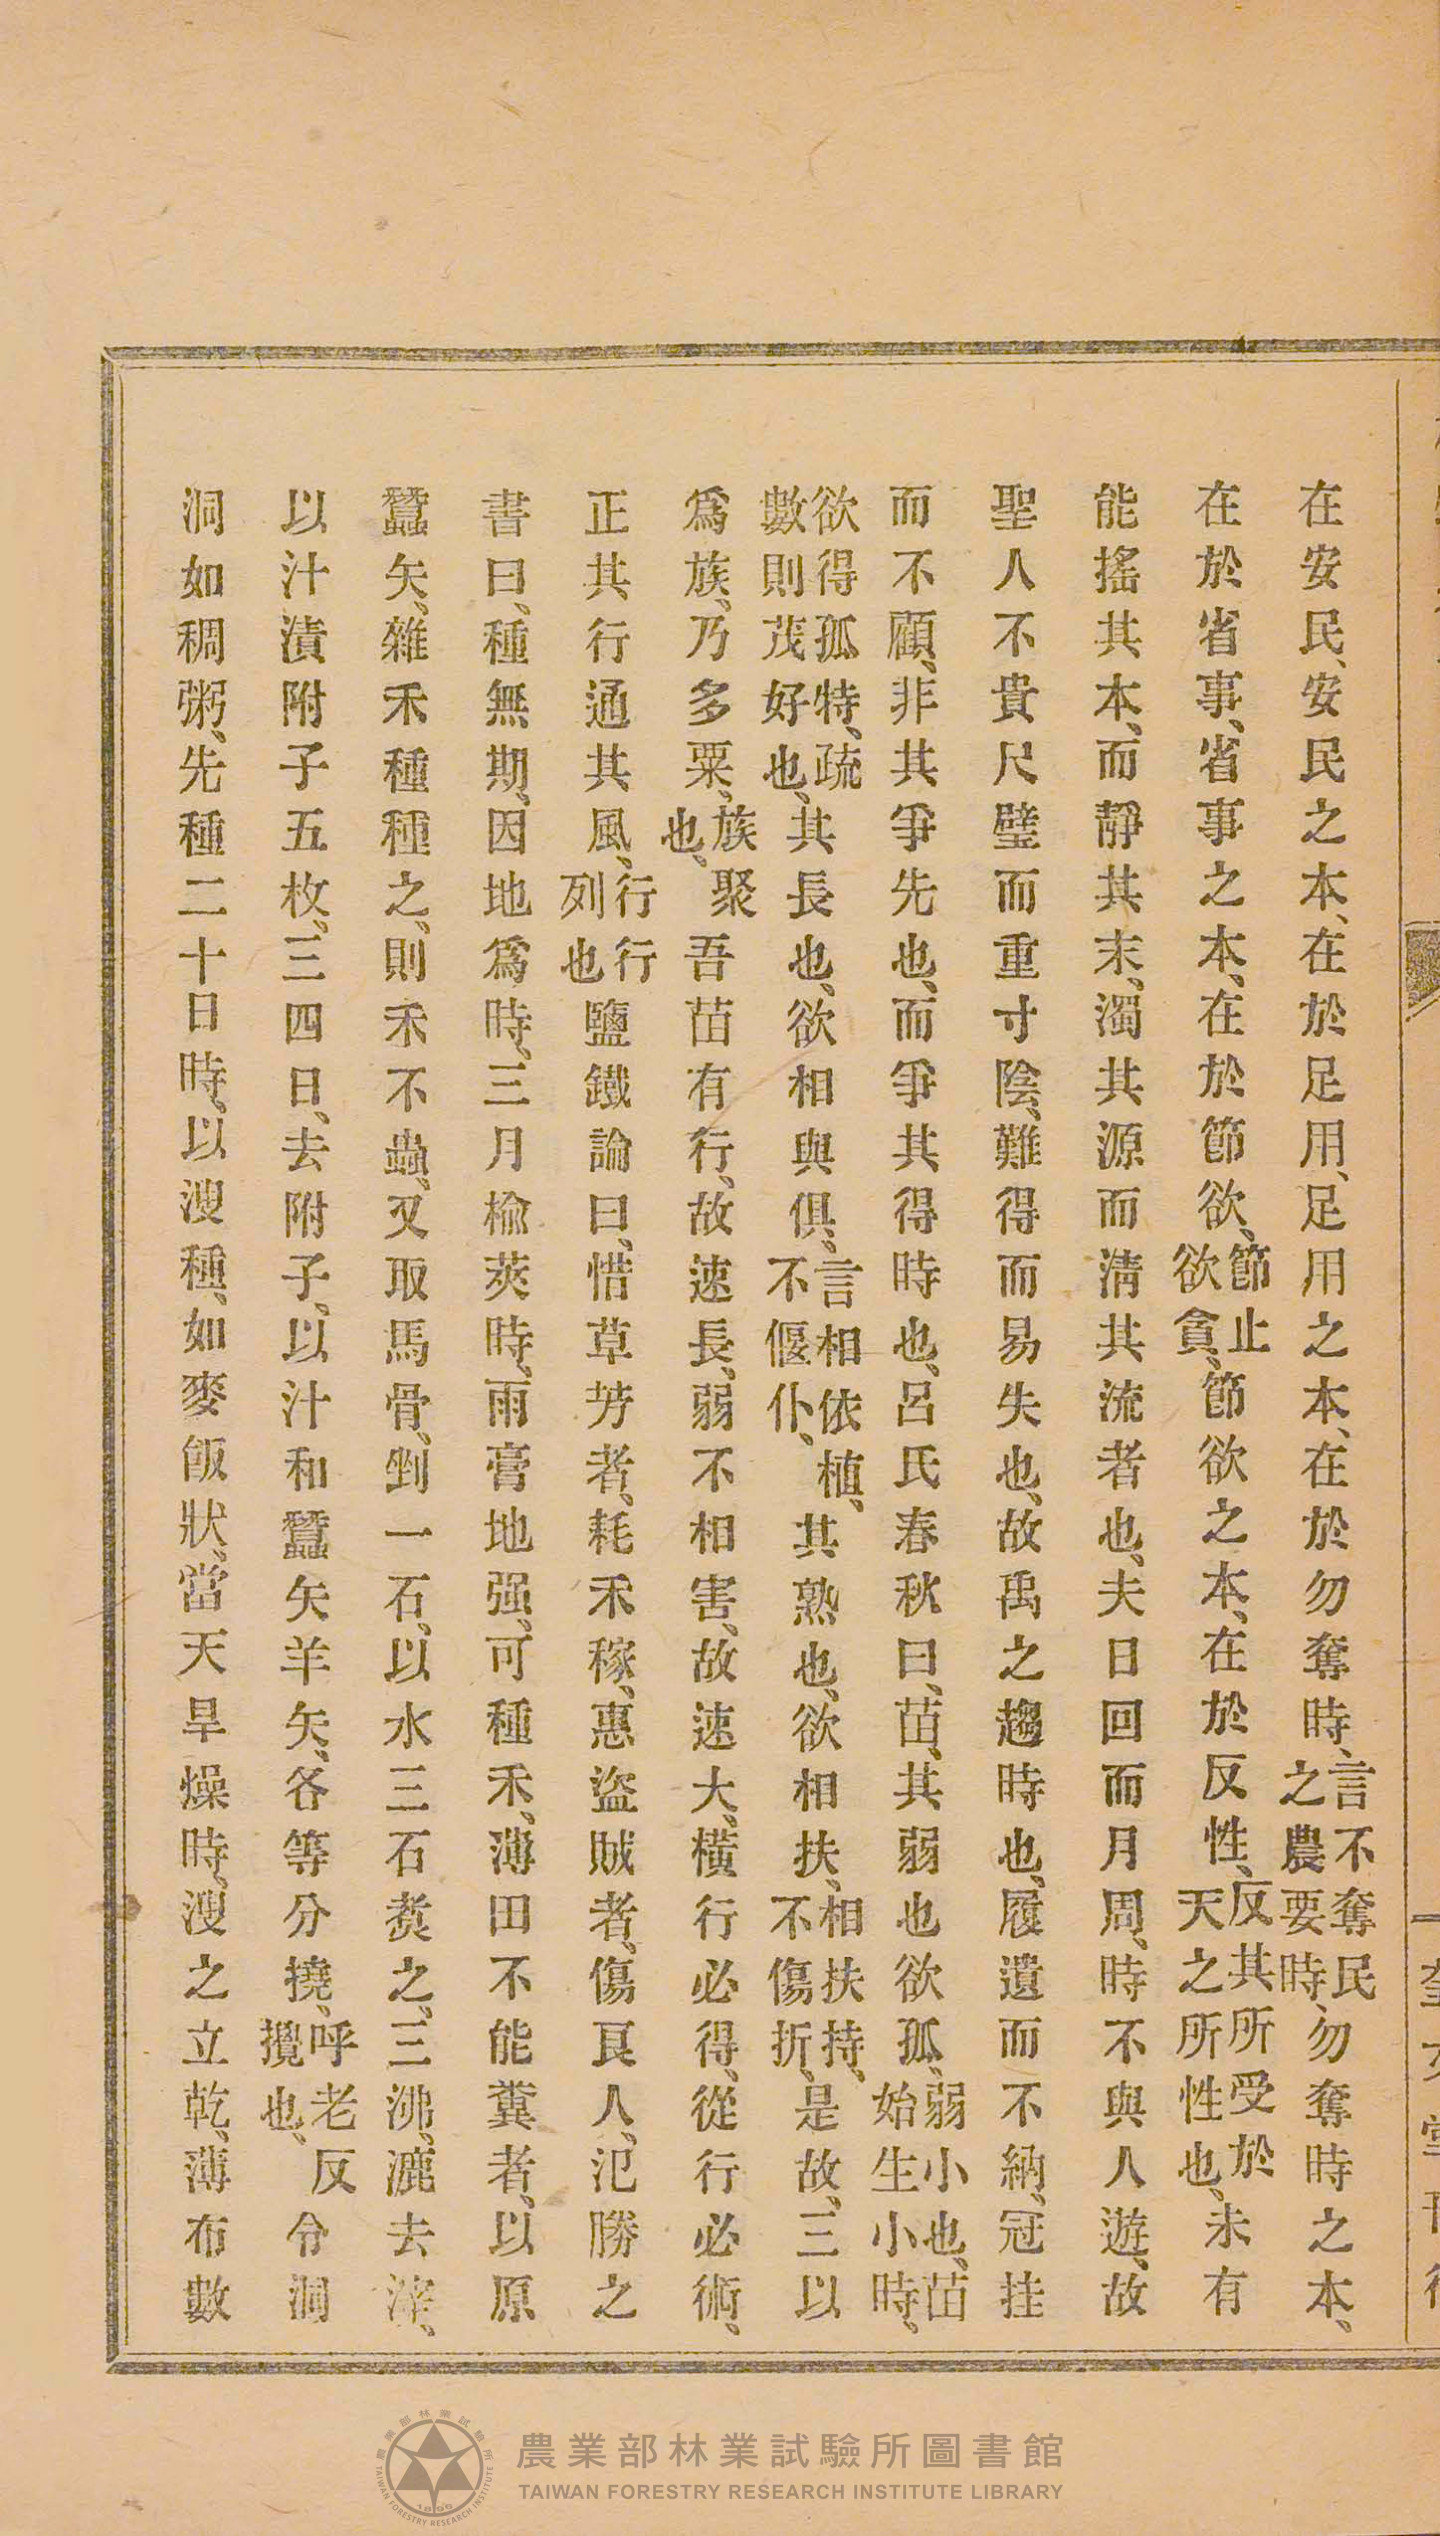 在安民、安民之本、在於足用、足用之本、在於勿奪時、言不奪民之農要時、勿奪時之本、
在於省事、省事之本、在於節欲、節止欲貪、節欲之本、在於反性、反其所受於天之所性也、未有
能搖其本、而靜其末、濁其源而清其流者也、夫日回而月周、時不與人遊、故
聖人不貴尺璧而重寸陰、難得而易失也、故禹之趨時也、履遺而不納、冠挂
而不顧、非其爭先也、而爭其得時也、呂氏春秋曰、苗、其弱也欲孤、弱小也、苗始生小時、
欲得孤特、疏數則茂好也、其長也、欲相與俱、言相依植、不偃仆、其熟也、欲相扶、相扶持、不傷折、是故、三以
爲族、乃多粟、族聚也、吾苗有行、故速長、弱不相害、故速大、橫行必得、從行必術、
正其行通其風、行行列也鹽鐵論曰、惜草芳者、耗禾稼、惠盜賊者、傷良人、氾勝之
書曰、種無期、因地爲時、三月榆莢時、雨膏地强、可種禾、薄田不能糞者、以原
蠶矢、雜禾種種之、則禾不蟲、又取馬骨、剉一石、以水三石煑之、三沸、漉去滓、
以汁漬附子五枚、三四日、去附子、以汁和蠶矢羊矢、各等分撓、呼老反攪也、令洞
洞如稠粥、先種二十日時、以溲種、如麥飯狀、當天旱燥時、溲之立乾、薄布數
農業部林業試驗所圖書館
TAIWAN FORESTRY RESEARCH INSTITUTE LIBRARY